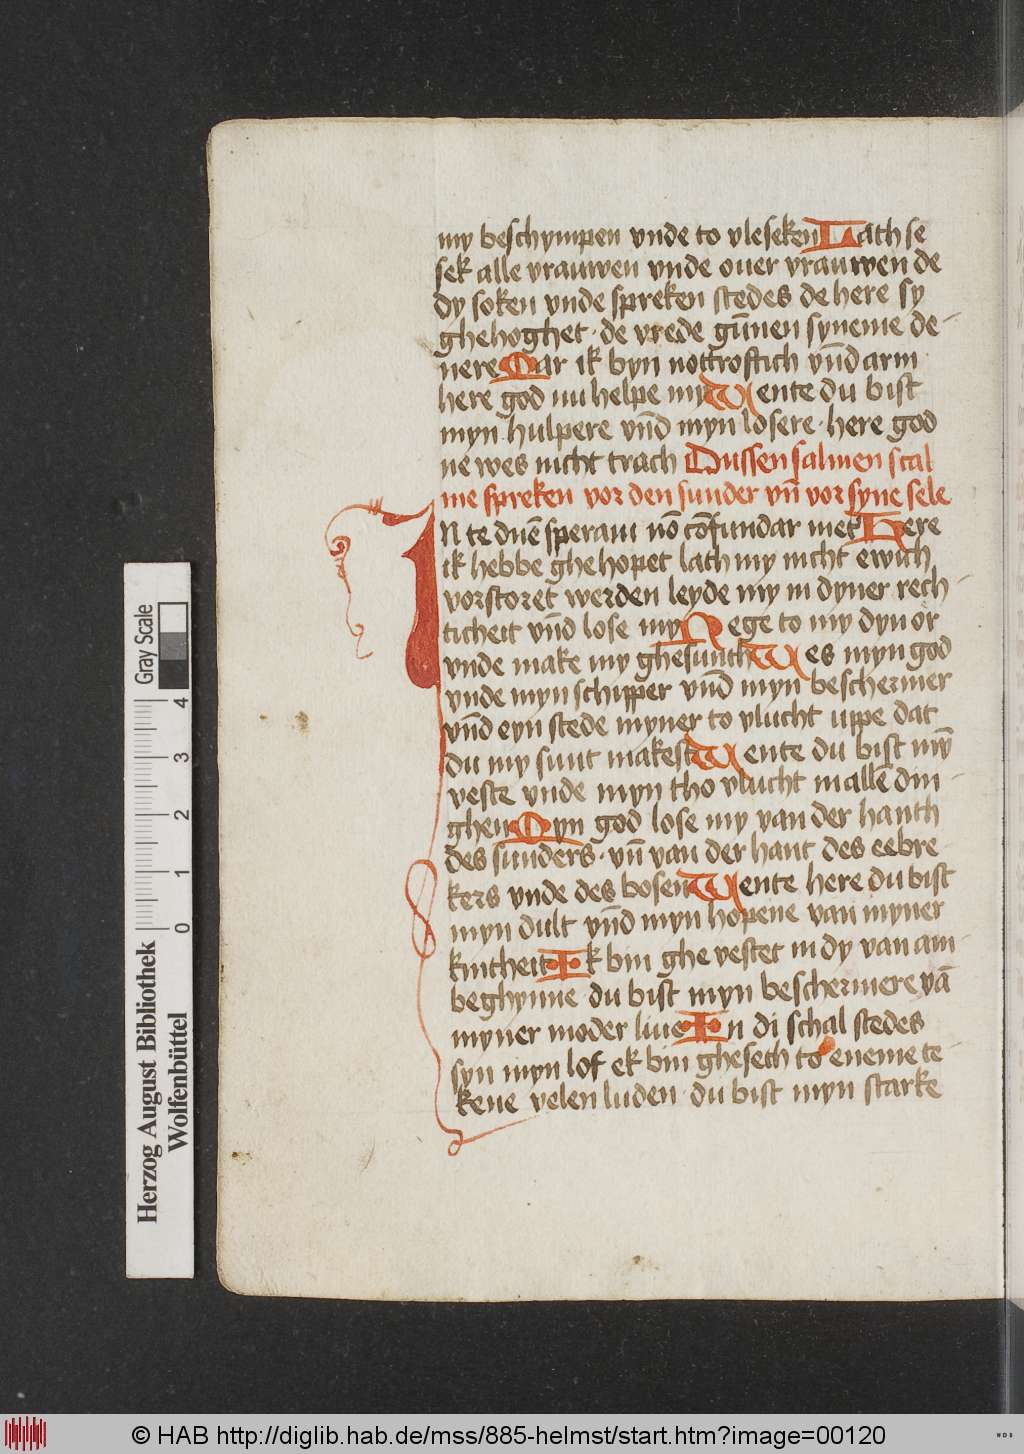 my beschympen vnde to vleseken Lath se
sek alle vrauwen vnde ouer vrauwen de
dy soken vnde spreken stedes de here sy
ghehoghet · de vrede gūnen syneme de-
nere Oar ik byn nottroftich vn̄d arm
here god nu helpe my Wente du bist
myn hulpere vn̄d myn losere · here god
ne wes nicht trach Dussen salmen scal
me spreken vor den sunder vn̄ vor syne sele
IN te dn̄e speraui nō cōfundar met Here
ik hebbe ghehopet lath my nicht ewich
vorstoret werden leyde my in dyner rech-
ticheit vn̄d lose my Nege to my dyn or
vnde make my ghesunth Wes myn god
vnde myn schipper vn̄d myn beschermer
vn̄d eyn stede myner to vlucht uppe dat
du my sunt makest Wente du bist mȳ
veste vnde myn tho vlucht in allē din-
ghen Myn god lose my van der hanth
des sunders · vn̄ van der hant des eebre-
kers vnde des bosen Wente here du bist
myn dult vn̄d myn hopene van myner
kintheit Ik bin ghevestet in dy van am-
beghynne du bist myn beschermere vā
myner moder liue In di schal stedes
syn myn lof ek bin ghesech to eneme te-
kene velen luden · du bist myn starke
Gray Scale
4 3 2 1 0
Herzog August Bibliothek
Wolfenbüttel
© HAB http://diglib.hab.de/mss/885-helmst/start.htm?image=00120